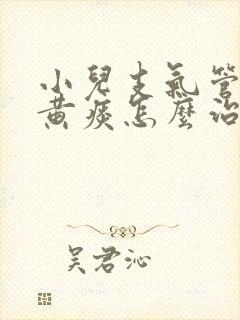 小兒支氣管
黃痰怎麼治
吳君沁